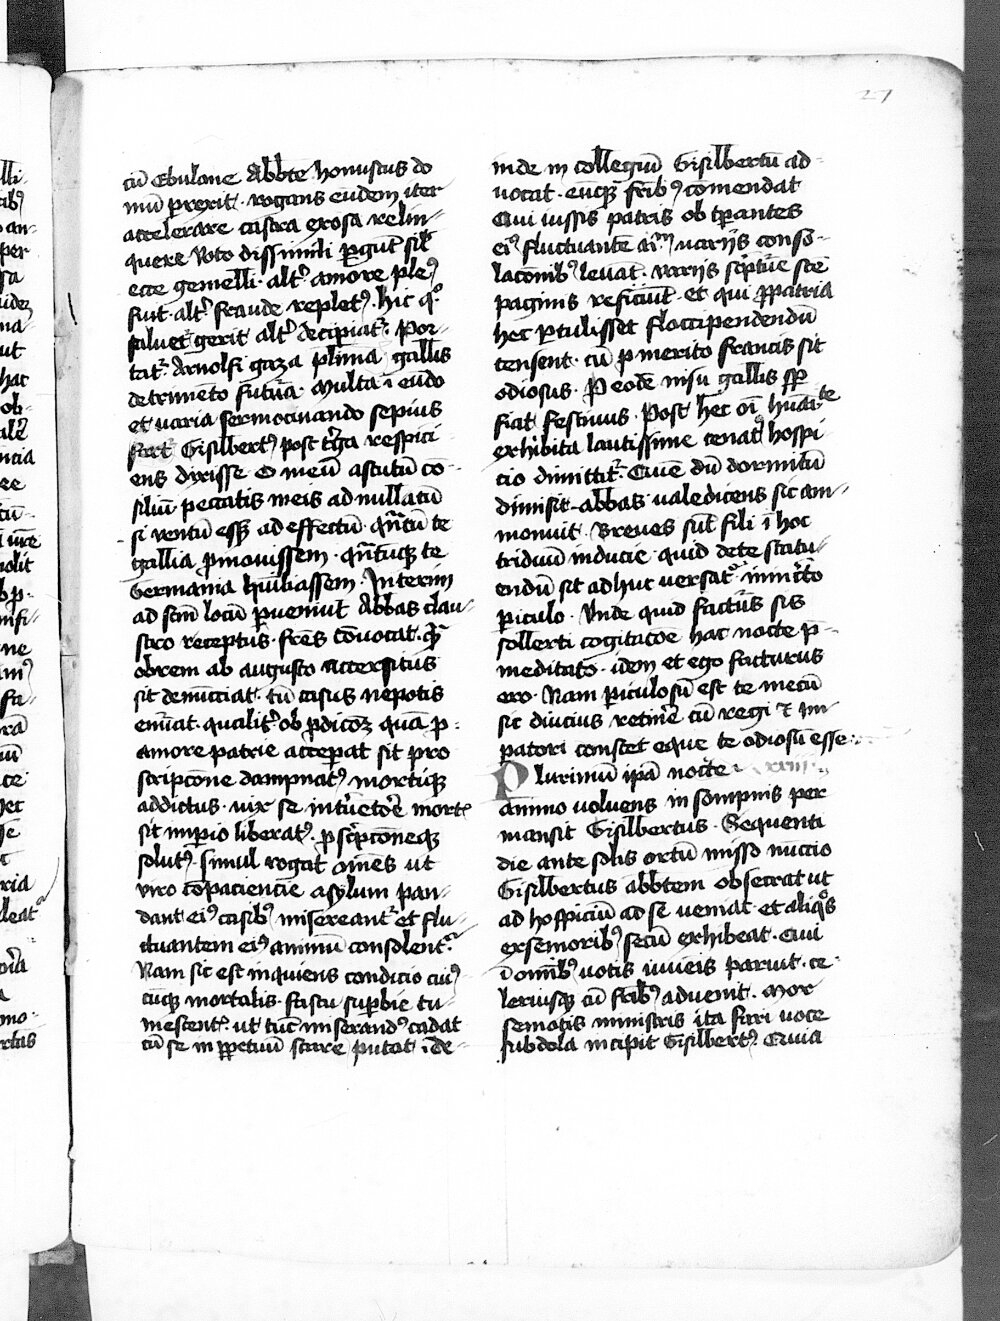 27
cū Ebulone Abbate honustus do
mū perexit. rogans eundem iter
accelerare castra exosa relin-
quere Voto dissimili pergūt sil'
ecce gemelli. alt' amore plen9
fuit. alt' fraude replet9. hic qo
salue t' gerit alt' decipiat'. Por-
tat' Arnolfi gaza plīma gallis
detrimēto futura. Multa ī eūdo
et uaria sermocinando sepius
fert' Gisilbert9 post t'ga respici-
ens dixisse O meū astutū cō-
siliū. peccatis meis ad nullatū
si ventū esset ad effectū. qn̄tū te
gallia p̄mouissem. qn̄tūq; te
Germania hūiliassem. Interim
ad scm̄ locū pueniūt Abbas clau-
stro receptus. fres cōuocat. qm̄
obrem ab augusto accersitus
sit denūcciat. tū casus nepotis
enūcat. qualit' ob pdicōz quā p-
amore patrie acceperat sit pro
scripcōne dampnat9 mortiq;
addictus. uix se īnt'uetōe morte
sit impio liberat9. pscripcōneq;
solut9. simul rogat omēs ut
viro cōpaciencie asylum pan-
dant ei9 casib9 misereant' et flu-
ctuantem ei9 animū consolent'.
Nam sic est inquiens condicio cui9
cūq; mortalis. fastu supbie tu-
mescent'. ut tūc miserand9 cadat
cū se in ppetuū stare putat. de-
inde in collegiū Gisilbertū ad-
uocat. eūq; frib9 comendat
Qui iussis patris obtpantes
ei9 fluctuantē aīm uarijs conso-
lacionib9 leuāt. uarijs scptūe sce
paginis reficiūt. et qui ppatria
hec ptulisset floccipendendū
censent. cū p merito francis sit
odiosus. P eodē nisu gallis sp
fiat festiuus. Post hec oī hūaītate
exhibita lautissime cenat9 hospi-
cio dimittit'. Quē dū dormitū
dimisit. abbas ualedicens sic am-
monuit. Breues sūt fili ī hoc
triduū inducie. quid de te statu-
endū sit adhuc versat' in incerto
periculo. Vnde quid factur9 sis
sollerti cogitacōe hac nocte p-
meditato. idem et ego facturus
ero. Nam piculosū est te mecū
sic diucius retinē cū regi ⁊ im-
patori constet eque te odiosū esse
Plurimū ipā nocte
animo uoluens insompnis per
mansit Gisilbertus. Sequenti
die ante solis ortū misso nūccio
Gisilbertus abbtem obsecrat ut
ad hospiciū ad se ueniat et aliqos
ex senioribus secū exhibeat. Qui
ī omib9 uotis iuueis paruit. ce-
leriusq; cū frib9 aduenit. Mox
semotis ministris ita fari uoce
subdola incipit Gisilbert9 Quia